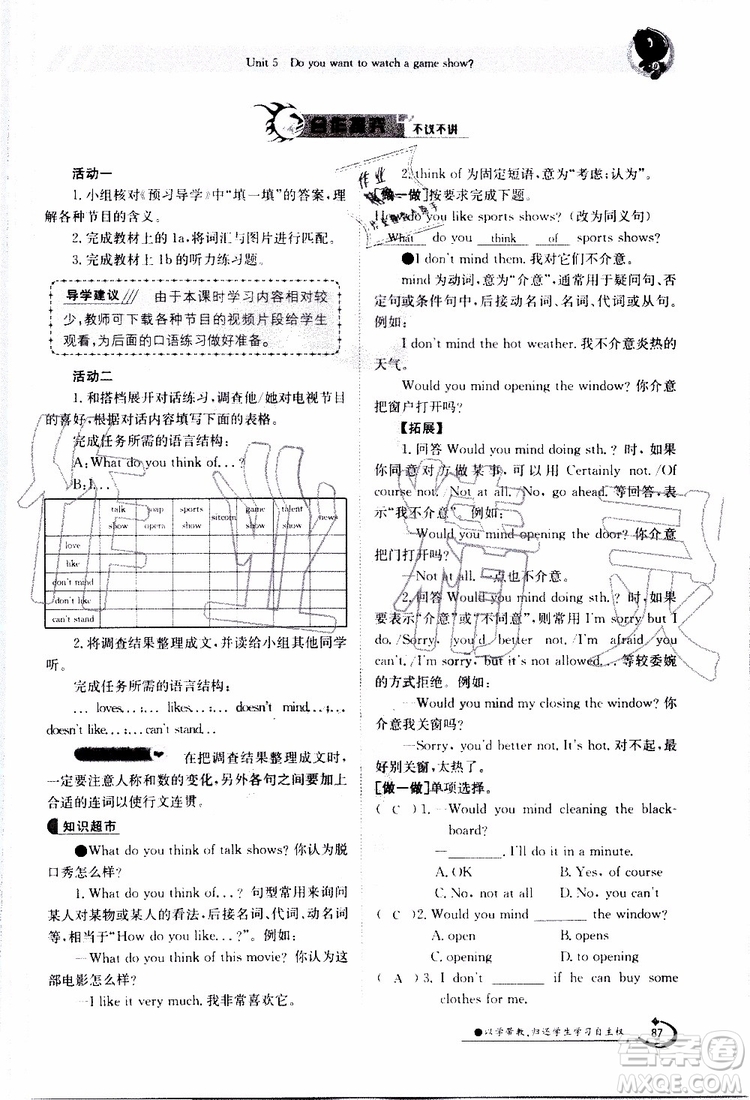 Unit 5 Do you want to watch a game show?
不议不讲
活动一
1. 小组核对《预习导学》中“填一填”的答案,理
解各种节目的含义。
2. 完成教材上的 1a,将词汇与图片进行匹配。
3. 完成教材上 1b 的听力练习题。
导学建议 由于本课时学习内容相对较
少,教师可下载各种节目的视频片段给学生
观看,为后面的口语练习做好准备。
活动二
1. 和搭档展开对话练习,调查他/她对电视节目
的喜好,根据对话内容填写下面的表格。
完成任务所需的语言结构:
A: What do you think of...?
B: I...
talk show soap opera sports show sitcom game show talent show news
love
like
don't mind
don't like
can't stand
2. 将调查结果整理成文,并读给小组其他同学
听。
完成任务所需的语言结构:
...loves...;...likes...;...doesn't mind...;...
doesn't like...;...can't stand...
在把调查结果整理成文时,
一定要注意人称和数的变化,另外各句之间要加上
合适的连词以使行文连贯。
知识超市
●What do you think of talk shows? 你认为脱
口秀怎么样?
1. What do you think of...? 句型常用来询问
某人对某物或某人的看法,后接名词、代词、动名词
等,相当于“How do you like...?”。例如:
—What do you think of this movie? 你认为这
部电影怎么样?
—I like it very much. 我非常喜欢它。
2. think of 为固定短语,意为“考虑;认为”。
[做一做]按要求完成下题。
How do you like sports shows?(改为同义句)
What do you think of sports shows?
●I don't mind them. 我对它们不介意。
mind 为动词,意为“介意”,常用于疑问句、否
定句或条件句中,后接动名词、名词、代词或从句。
例如:
I don't mind the hot weather. 我不介意炎热的
天气。
Would you mind opening the window? 你介意
把窗户打开吗?
【拓展】
1. 回答 Would you mind doing sth.? 时,如果
你同意对方做某事,可以用 Certainly not. /Of
course not. /Not at all. /No, go ahead. 等回答,表
示“我不介意”。例如:
—Would you mind opening the door? 你介意
把门打开吗?
—Not at all. 一点也不介意。
2. 回答 Would you mind doing sth.? 时,如果
要表示“介意”或“不同意”,可以用 I'm sorry but I
do. /Sorry, you'd better not. /I'm afraid you
can't. /I'm sorry, but it's not allowed... 等较委婉
的方式拒绝。例如:
—Would you mind my closing the window? 你
介意我关窗吗?
—Sorry, you'd better not. It's hot. 对不起,最
好别关窗,太热了。
[做一做]单项选择。
( C )1. —Would you mind cleaning the black-
board?
—________. I'll do it in a minute.
A. OK B. Yes, of course
C. No, not at all D. No, thanks
( C )2. Would you mind ________ the window?
A. open B. opens
C. opening D. to opening
( A )3. I don't ________ if he can buy some
clothes for me.
●以学带教,归还学生学习自主权
87